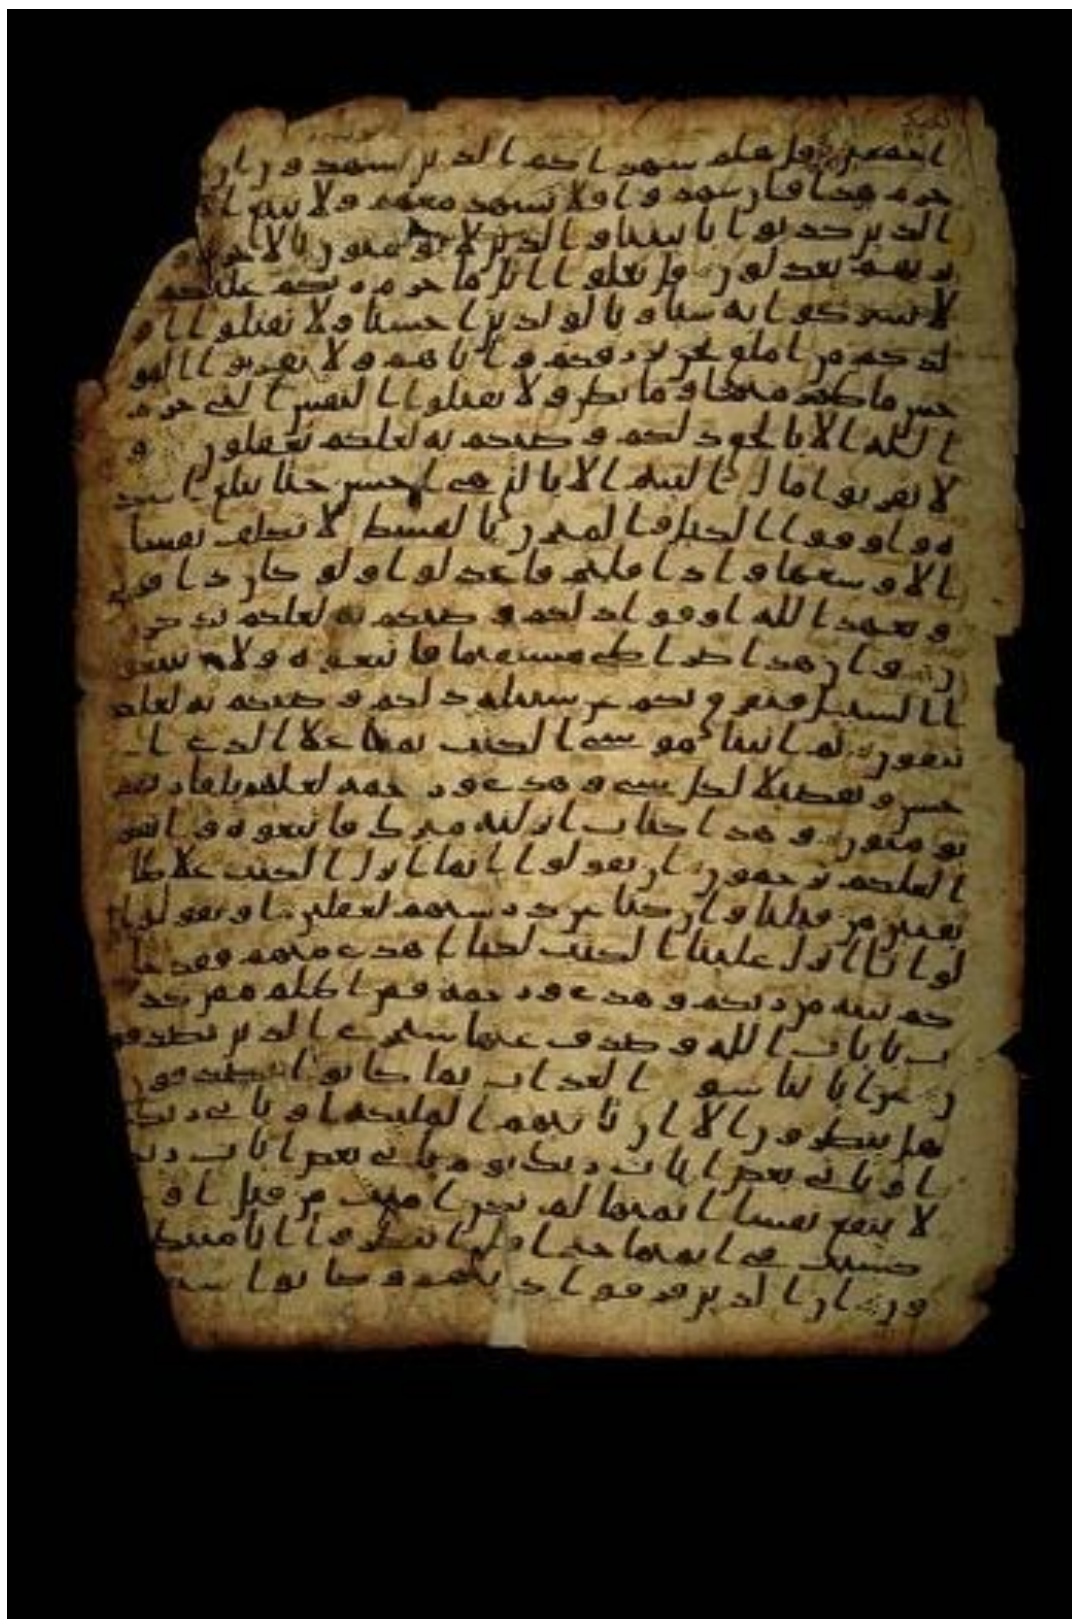 اجمعين قل هلم شهداكم الذين يشهدون ان
حرم هذا فان شهدوا فلا تشهد معهم ولا تتبع ا
الذين كذبوا باياتنا والذين لا يومنون بالاخرة و
بربهم يعدلون قل تعلوا اتل ما حرم ربكم عليكم
الا تشركوا به شيا وبالولدين احسنا ولا تقتلوا او
لدكم من املق نحن نرزقكم واياهم ولا تقربوا الفو
حش ما ظهر منها وما بطن ولا تقتلوا النفس التي حرم
الله الا بالحق ذلكم وصيكم به لعلكم تعقلون و
لا تقربوا مال اليتيم الا بالتي هي احسن حتا يبلغ اشد
ه واوفوا الكيل والميزن بالقسط لا نكلف نفسا
الا وسعها واذا قلتم فاعدلوا ولو كان ذا قربى
وبعهد الله اوفوا ذلكم وصيكم به لعلكم تذكرو
ن وان هذا صراطي مستقيما فاتبعوه ولا تتبعو
ا السبل فتفرق بكم عن سبيله ذلكم وصيكم به لعلكم
تتقون ثم اتينا موسى الكتب تماما علا الذي ا
حسن وتفصيلا لكل شي وهدى ورحمة لعلهم بلقا ربهم
يومنون وهذا كتاب انزلنه مبرك فاتبعوه واتقو
ا لعلكم ترحمون ان تقولوا انما انزل الكتب علا طا
يفتين من قبلنا وان كنا عن درستهم لغفلين او تقولوا
لو انا انزل علينا الكتب لكنا اهدى منهم فقد جا
كم بينة من ربكم وهدى ورحمة فمن اظلم ممن كذ
ب بايات الله وصدف عنها سنجزي الذين يصدفو
ن عن اياتنا سو العذاب بما كانوا يصدفون
هل ينظرون الا ان تاتيهم المليكة او ياتي ربك
او ياتي بعض ايات ربك يوم ياتي بعض ايات ربك
لا ينفع نفسا ايمنها لم تكن امنت من قبل او
كسبت في ايمنها خيرا قل انتظروا انا منتظر
ون ان الذين فرقوا دينهم وكانوا